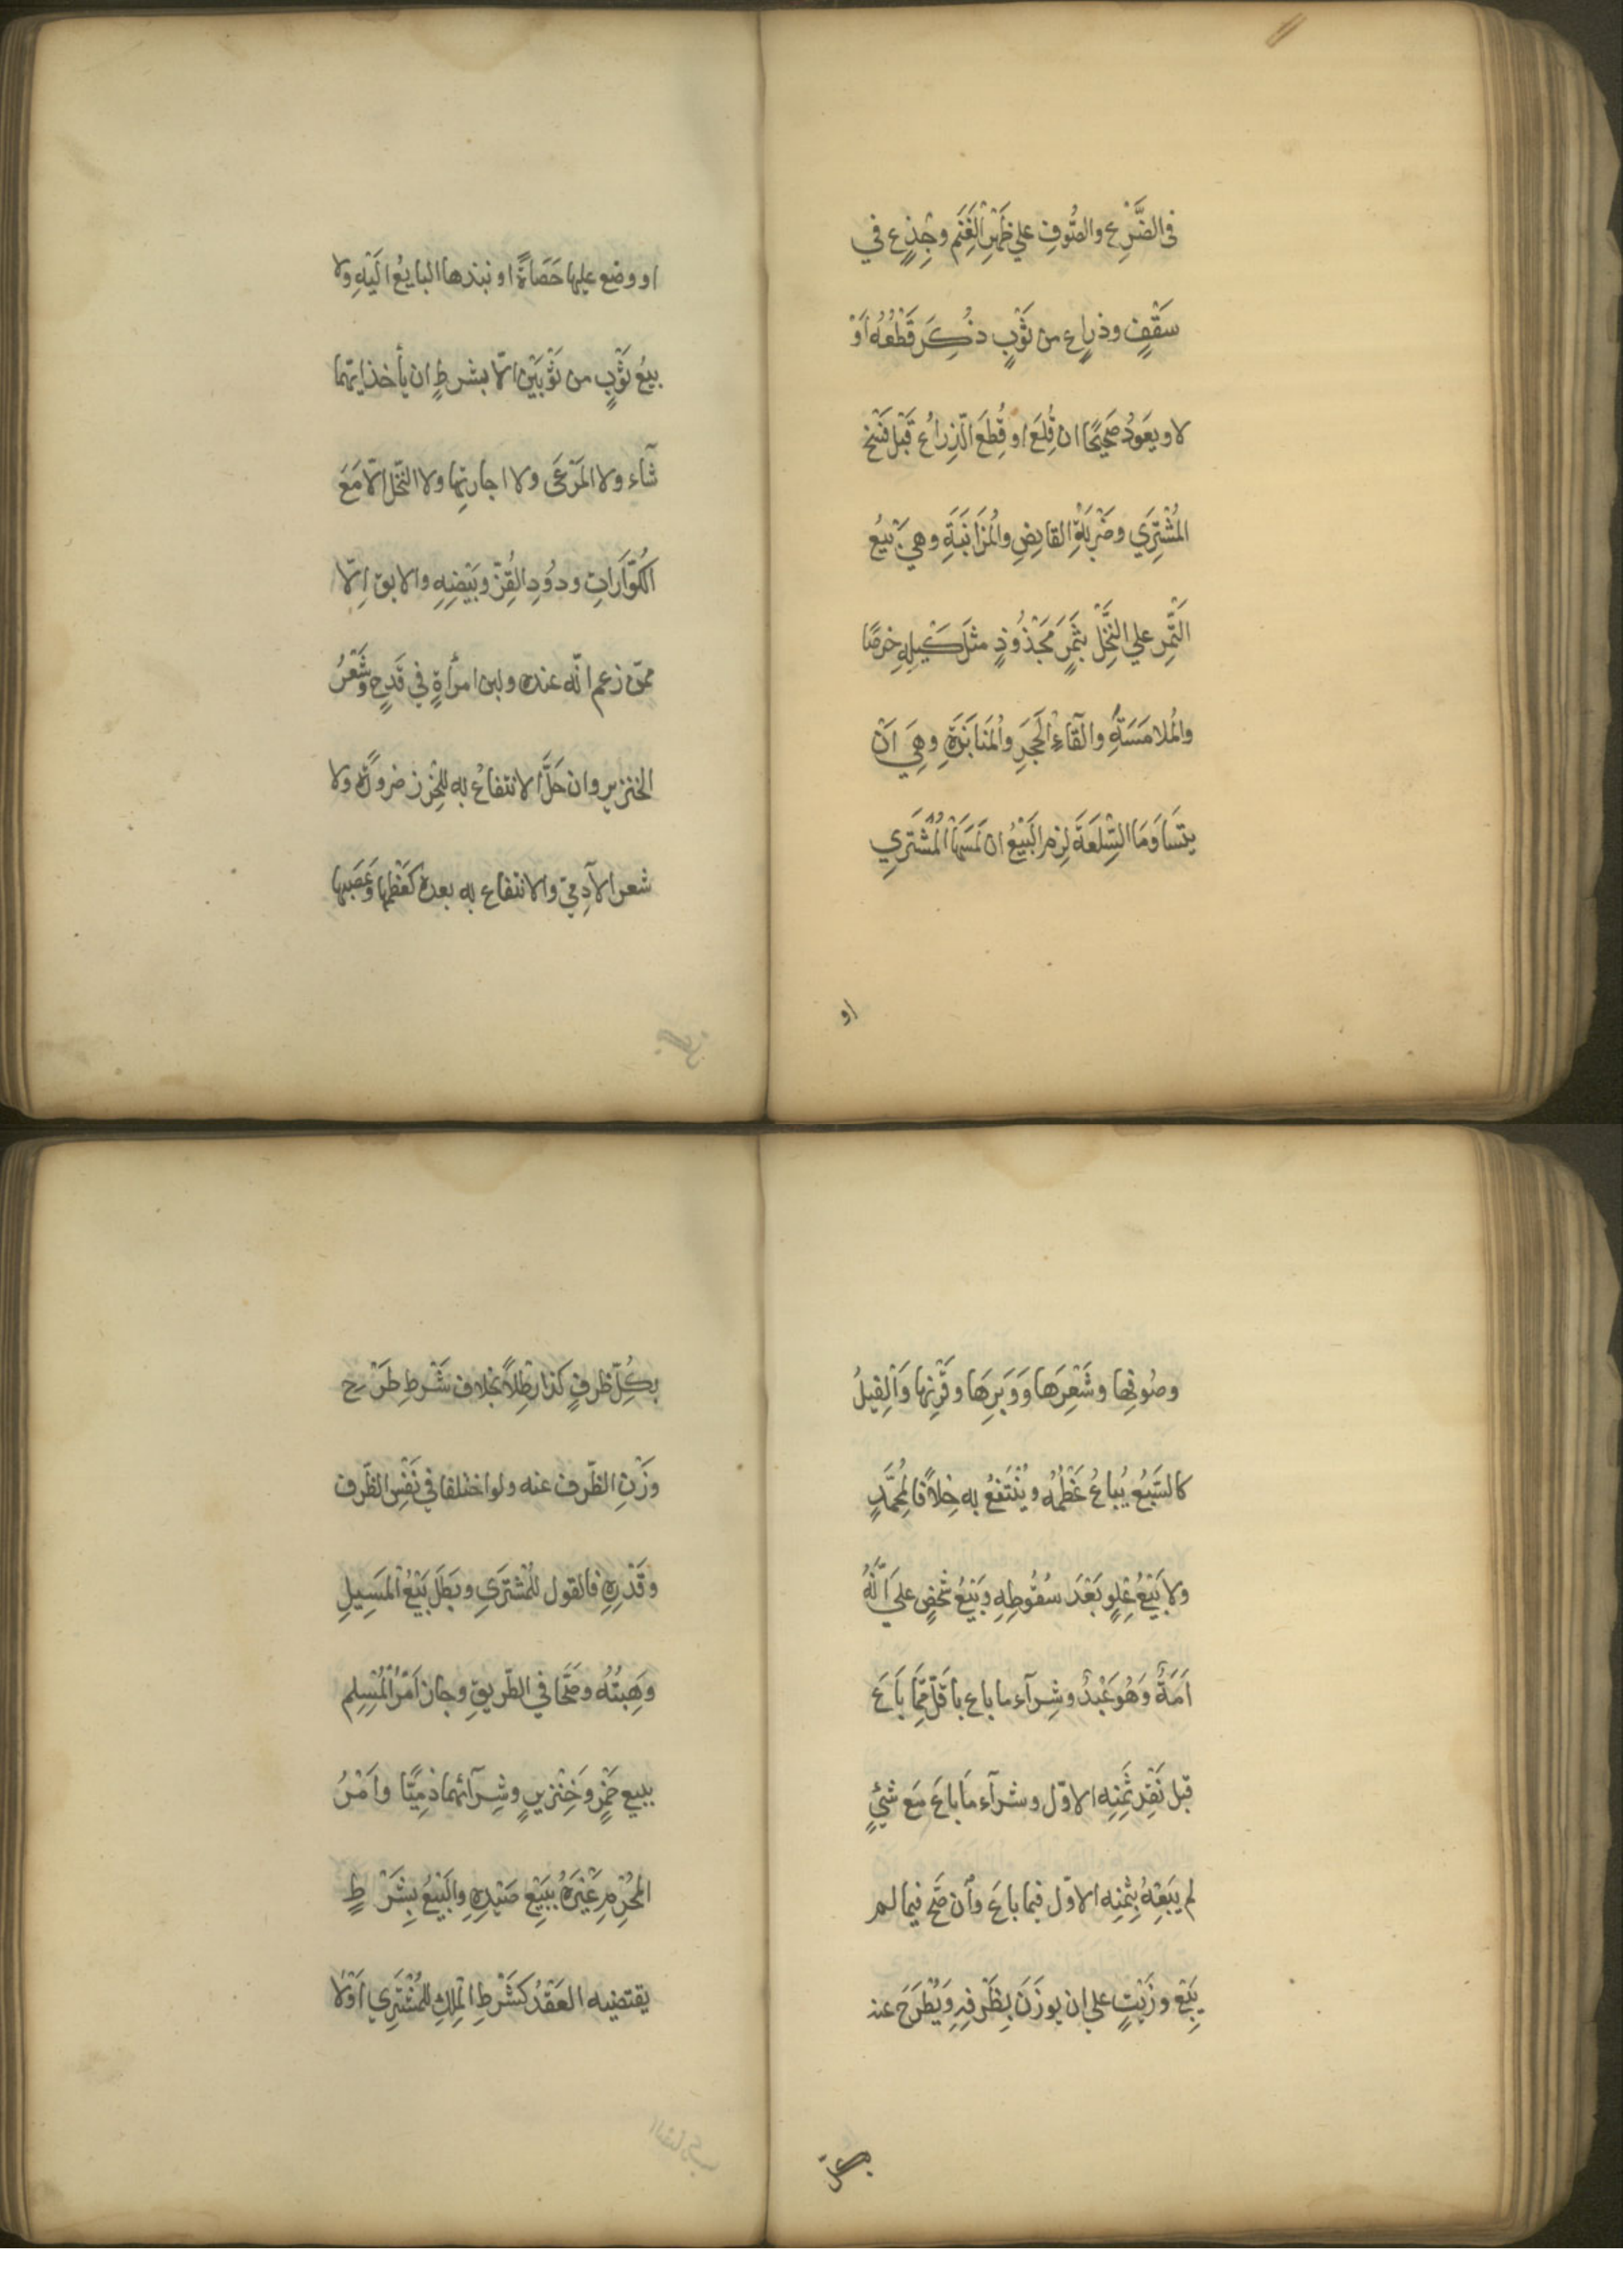 فى الضَّرْعِ والصُّوفِ علي ظَهْرِ الْغَنَمِ وجِذْعٍ في
سَقْفٍ وذراعٍ من ثَوْبٍ ذُكِرَ قَطْعُهُ اَوْ
لا ويعَودُ صَحِيحًا ان قُلِعَ او قُطِعَ الذِّراعُ قَبْلَ فَسْخِ
المُشْتَرِي وضَرْبَةِ القانِصِ والمُزَابَنَةِ وهِيَ بَيْعُ
الَتَّمِرِ علي النَّخْلِ بتَمَرٍ مَجْذُوذٍ مثلَ كَيْلِهِ خرصًا
والمُلامَسَةِ والْقَآءِ الْحَجَرِ والْمُنَابَذَةِ وهِيَ اَنْ
يتسَاوَمَا السِّلعَةَ لزم البَيْعُ ان لَمَسَهَا الْمُشْتَرِي
او
او وضع عليها حَصَاةً او نبذها البايعُ الَيْهِ ولا
بيعُ ثَوْبٍ من ثَوْبَيْنِ الّا بشرطِ ان يأخذ ايّهما
شآء ولا المَرْعَى ولا اجارتِها ولا النَّحْل الّا مَعَ
الكُوَّارَاتِ ودُودِ القِزّ وبَيْضِهِ والابق اِلّا
ممّن زعم انّه عنده ولبن امرأةٍ في قَدَحٍ وشَعْرُ
الخنزير وان حَلَّ الانتفاعُ به للخرز ضرورةً ولا
شعر الآدِميّ والانتفاع به بعده كعَظْمِها وعَصَبِها
وصُوفِها وشَعْرِهَا وَوَبَرِهَا وقَرْنِها وَالْفِيلُ
كالسَبُعِ يُباعُ عَظْمُهُ ويُنْتَفَعُ به خِلاَفًا لمُحَمَّدٍ
ولا بَيْعُ عِلْوٍ بَعْدَ سُقُوطِهِ وبَيْعُ شَخْصٍ علي اَنَّهُ
اَمَةٌ وَهُوَ عَبْدٌ وشِرآء ما باع باقلّ مِمَّا بَاعَ
قَبْلَ نَقْدِ ثَمَنِهِ الاوّل وشرآء مَا باعَ مَعَ شَيْءٍ
لم يَبِعْهُ بِثَمَنِه الاوّل فيما باعَ وأن صَحَّ فيما لم
يَبِعْ وزَيْتٍ علي ان يوزَنَ بِظَرْفِهِ ويُطْرَحَ عنه
بكلّ
بِكُلّ ظرفٍ كذا رِطْلاً بخلافِ شَرْطِ طَرْحِ
وزْنِ الظَّرف عنه ولو اختلفا في نَفْسِ الظَّرف
وقَدْرِهِ فالقول للمُشْتَرِي وبَطَلَ بَيْعُ المَسِيلِ
وهِبَتُهُ وصَحَّا في الطَّريق وجاز اَمْرُ الْمُسْلِم
ببيع خَمْرٍ وَخِنْزيرٍ وشِرَآئهما ذمِيًّا واَمْرُ
المُحْرِمِ غَيْرَهُ بِبَيْعِ صَيْدِهِ والبَيْعُ بِشَرْطٍ
يقتضيه العَقْدُ كَشَرْطِ الْمِلكِ لِلمُشْتَرِي اَوْلا